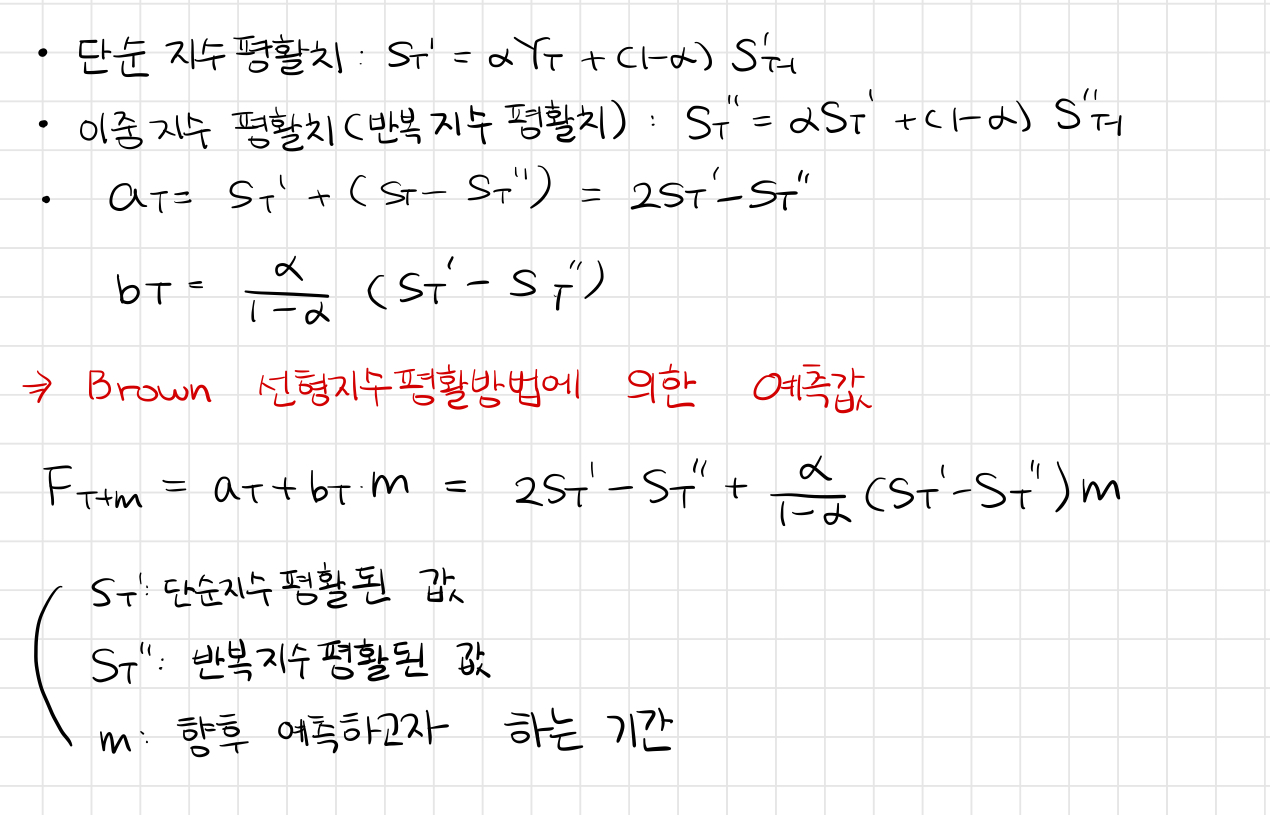 • 단순 지수평활치 : S_T' = αY_T + (1-α) S'_{T-1}
• 이중지수 평활치(반복지수 평활치) : S_T'' = αS_T' + (1-α) S''_{T-1}
• a_T = S_T' + (S_T - S_T'') = 2S_T' - S_T''
b_T = \frac{α}{1-α} (S_T' - S_T'')
⇒ Brown 선형지수평활방법에 의한 예측값
F_{T+m} = a_T + b_T·m = 2S_T' - S_T'' + \frac{α}{1-α} (S_T' - S_T'')m
S_T': 단순지수평활된 값
S_T'': 반복지수평활된 값
m: 향후 예측하고자 하는 기간